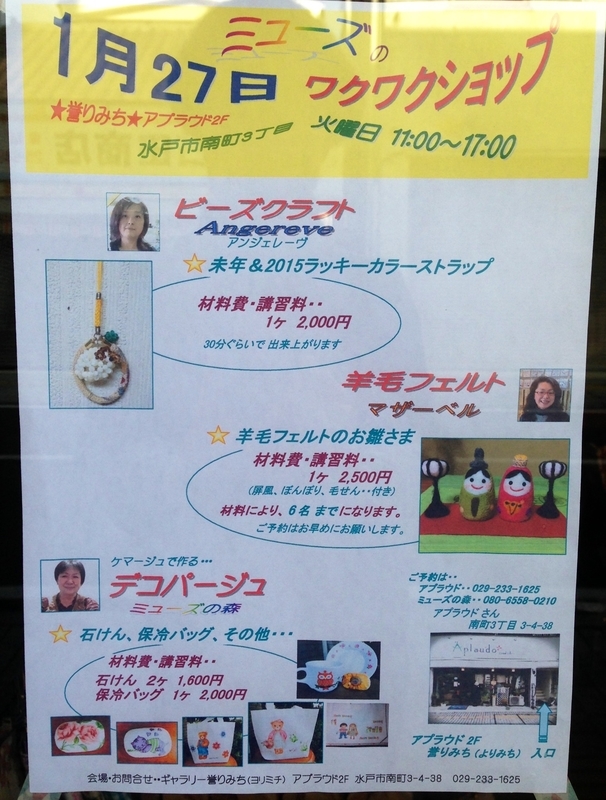 ミューズの
1月27日 ワクワクショップ
★誉りみち★アプラウド2F
水戸市南町3丁目 火曜日 11:00〜17:00
ビーズクラフト
Angereve
アンジェレーヴ
☆未年＆2015ラッキーカラーストラップ
材料費・講習料・・
1ケ 2,000円
30分ぐらいで 出来上がります
羊毛フェルト
マザーベル
☆羊毛フェルトのお雛さま
材料費・講習料・・
1ケ 2,500円
(屏風、ぼんぼり、毛せん・・付き)
材料により、6名 までになります。
ご予約はお早めにお願いします。
ケマージュで作る・・・
デコパージュ
ミューズの森
☆石けん、保冷バッグ、その他・・・
材料費・講習料・・
石けん 2ケ 1,600円
保冷バッグ 1ケ 2,000円
ご予約は・・
アプラウド・・029-233-1625
ミューズの森・・080-6558-0210
アプラウド さん
南町3丁目 3-4-38
Aplaudo
アプラウド 2F
誉りみち (よりみち) 入口
会場・お問合せ・・ギャラリー誉りみち(ヨリミチ) アプラウド2F 水戸市南町3-4-38 029-233-1625